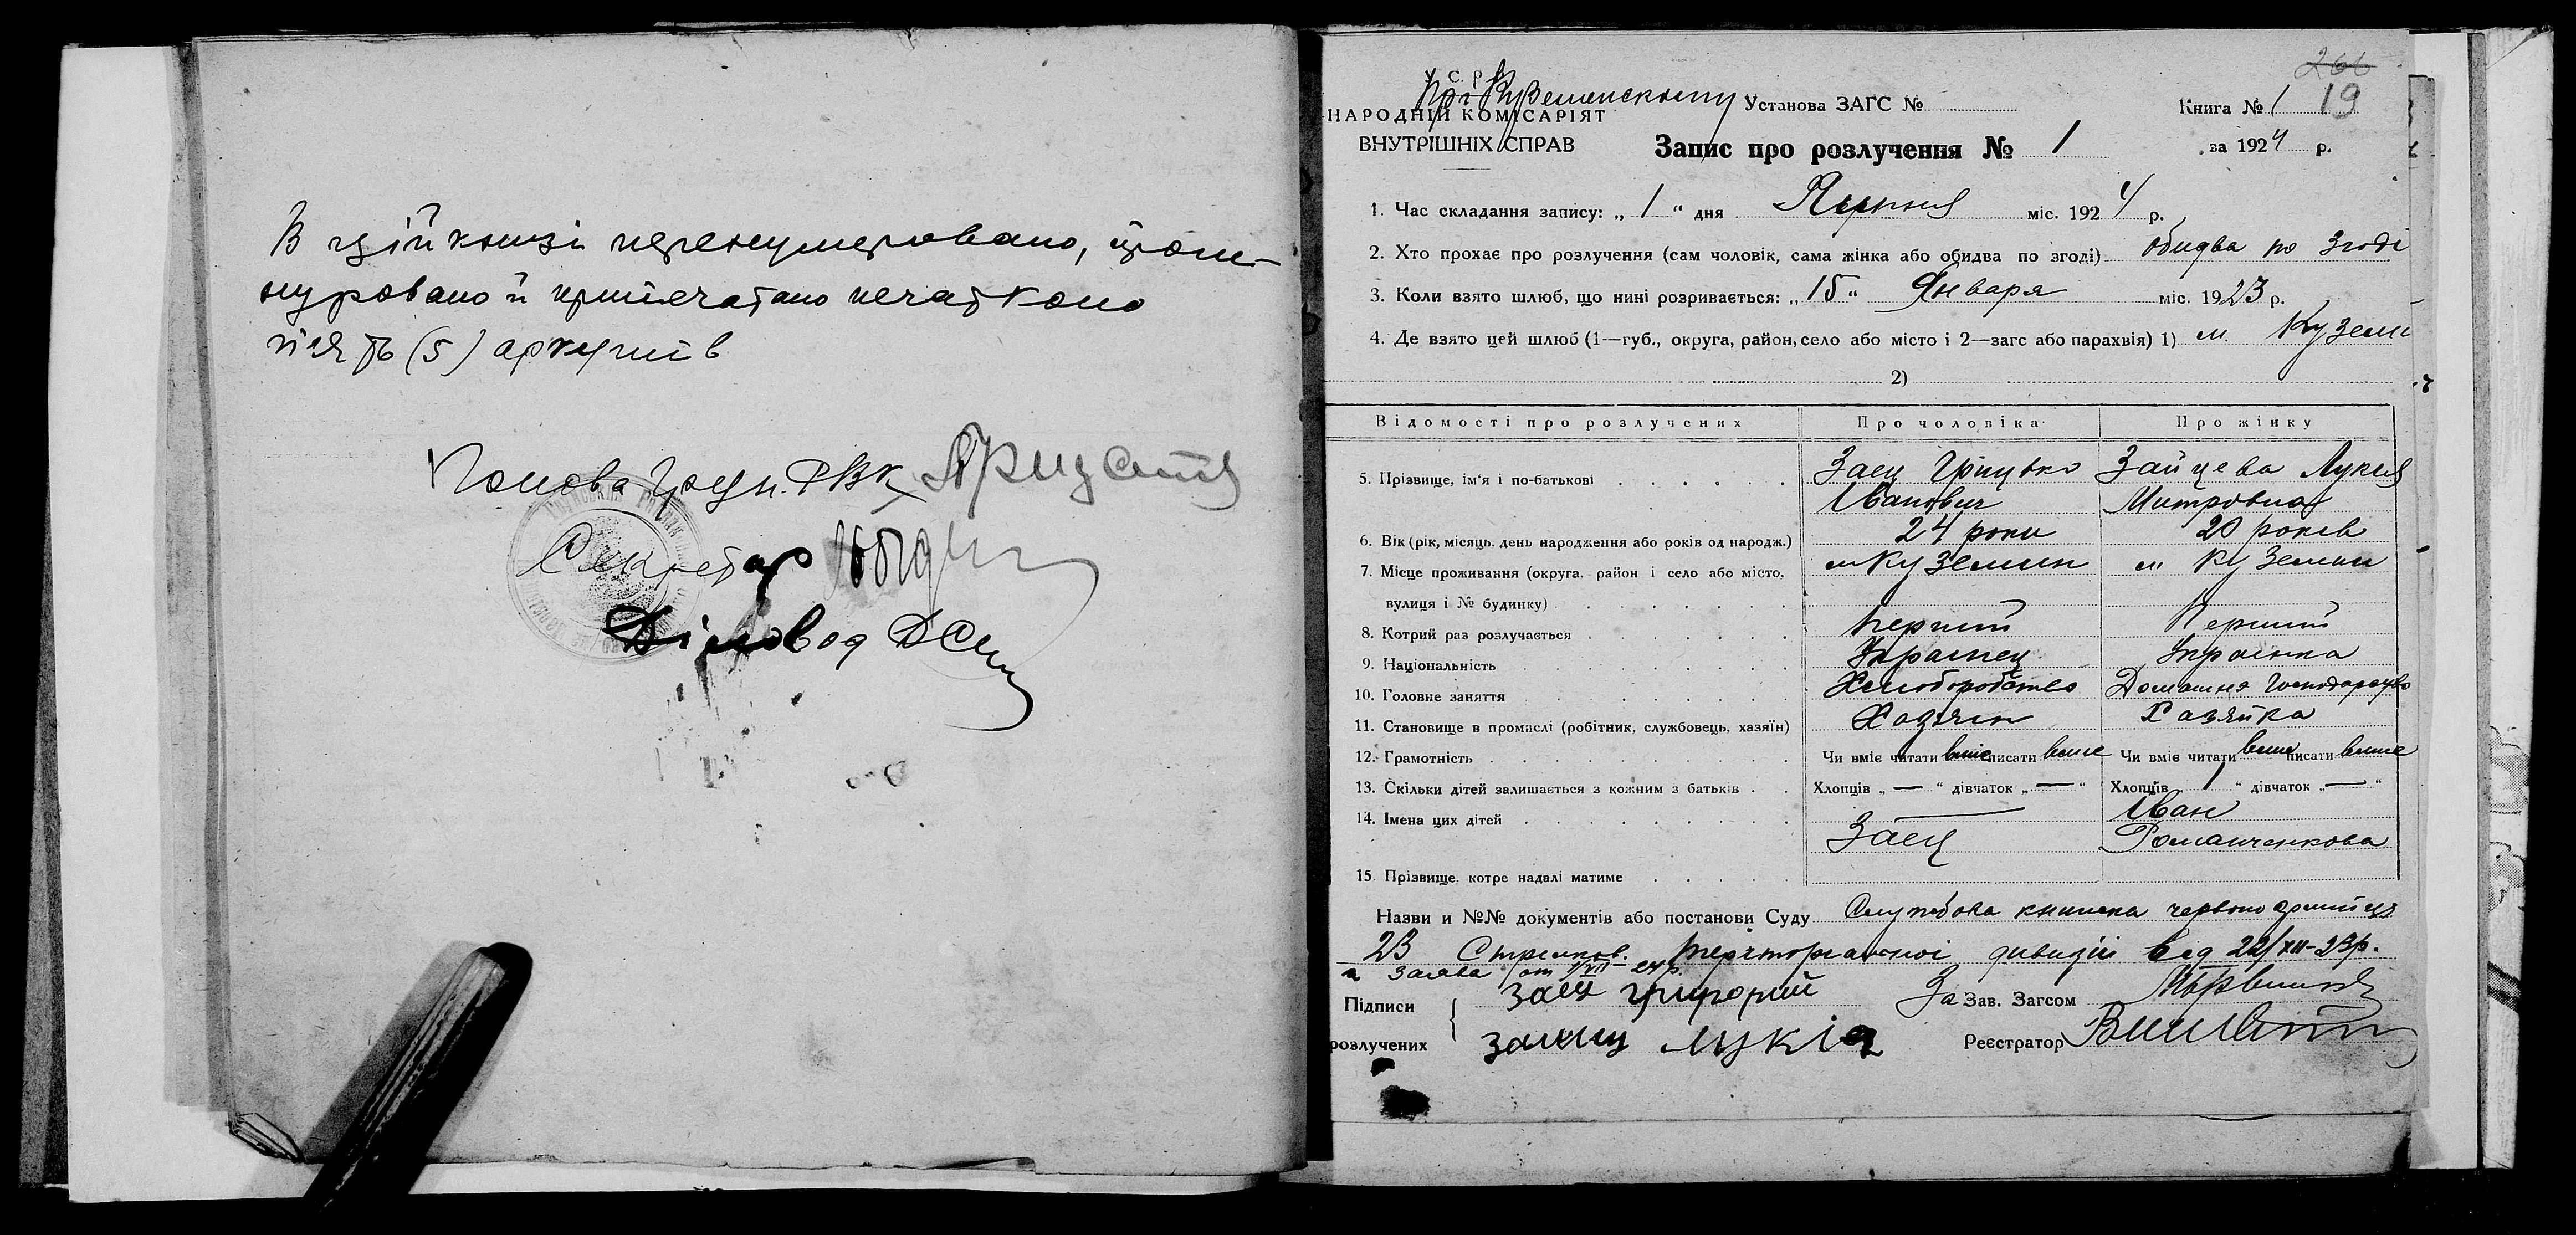 В цій книзі перенумеровано, прош-
нуровано й припечатано печаткою
п'ять (5) аркушів
Голова Грун. РВК
Секретар
Діловод
266
19
У. С. Р. Р.
При Куземенскому
НАРОДНІЙ КОМІСАРІЯТ
ВНУТРІШНІХ СПРАВ
Установа ЗАГС №
Книга № 1
Запис про розлучення № 1
за 1924 р.
1. Час складання запису: „ 1 “ дня Липня міс. 1924 р.
2. Хто прохає про розлучення (сам чоловік, сама жінка або обидва по згоді) обидва по згоді
3. Коли взято шлюб, що нині розривається: „ 15 “ Января міс. 1923 р.
4. Де взято цей шлюб (1—губ., округа, район, село або місто і 2—загс або парахвія) 1) м. Куземи
2)
Відомості про розлучених Про чоловіка Про жінку
5. Прізвище, ім'я і по-батькові Заец Грицько Зайцева Лукия
Іванович Митровна
6. Вік (рік, місяць, день народження або років од народж.) 24 роки 20 років
7. Місце проживання (округа, район і село або місто, м Куземин м Куземин
вулиця і № будинку)
8. Котрий раз розлучається перший Перший
9. Національність Украінец Украінка
10. Головне заняття Хлиборобство Домашнє Господарство
11. Становище в промислі (робітник, службовець, хазяїн) Хазяін Хазяйка
12. Грамотність Чи вміє читати вміє писати вміє Чи вміє читати вміє писати вміє
13. Скільки дітей залишається з кожним з батьків Хлопців „ — “ дівчаток „ — “ Хлопців „ 1 “ дівчаток „ — “
14. Імена цих дітей — Іван
Заец Романченкова
15. Прізвище, котре надалі матиме
Назви и №№ документів або постанови Суду Службова книжка червоноармійця
23 Стрелков. териториальної дивизіи від 22/XII-23р.
и Заява от 1/VII-24р.
Підписи Заец Григорий За Зав. Загсом
розлучених Заиц Лукія Реєстратор